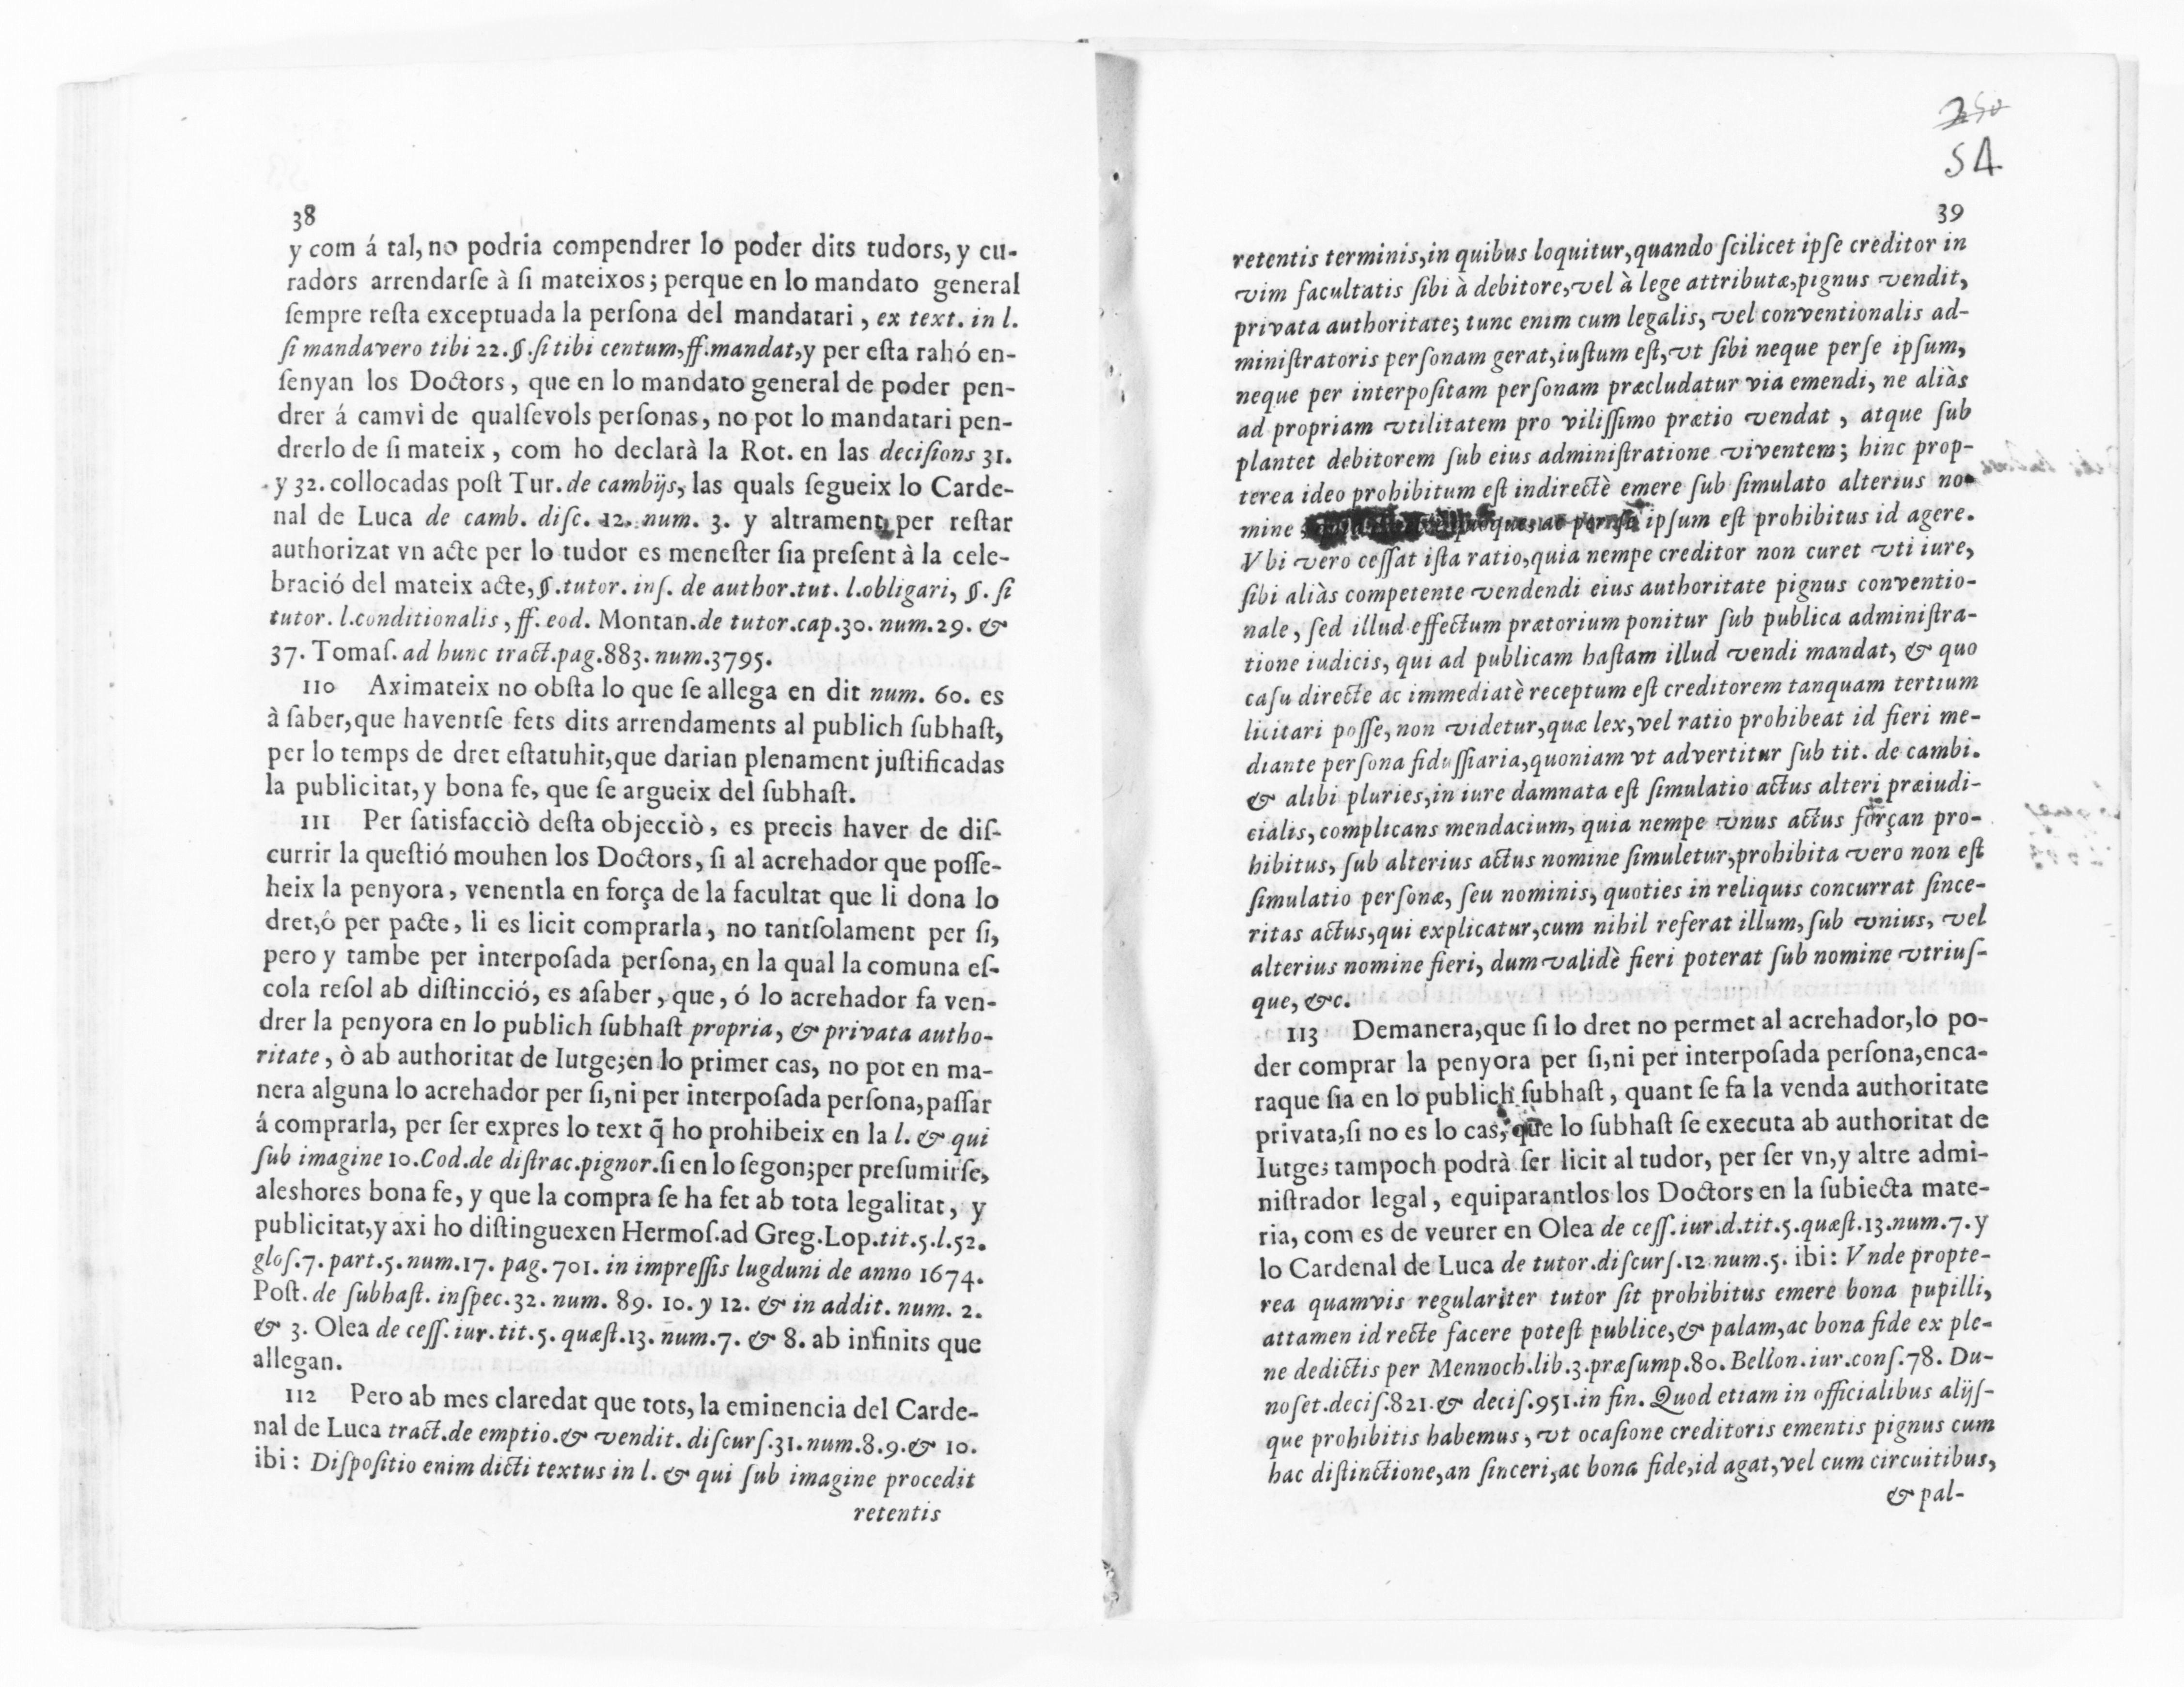 38
y com á tal, no podria compendrer lo poder dits tudors, y cu-
radors arrendarſe à ſi mateixos; perque en lo mandato general
ſempre reſta exceptuada la perſona del mandatari, ex text. in l.
ſi mandavero tibi 22. §. ſi tibi centum, ff. mandat, y per eſta rahó en-
ſenyan los Doctors, que en lo mandato general de poder pen-
drer á camvi de qualſevols perſonas, no pot lo mandatari pen-
drerlo de ſi mateix, com ho declarà la Rot. en las deciſions 31.
y 32. collocadas poſt Tur. de cambijs, las quals ſegueix lo Carde-
nal de Luca de camb. diſc. 12. num. 3. y altrament, per reſtar
authorizat vn acte per lo tudor es meneſter ſia preſent à la cele-
bració del mateix acte, §. tutor. inſ. de author. tut. l. obligari, §. ſi
tutor. l. conditionalis, ff. eod. Montan. de tutor. cap. 30. num. 29. &
37. Tomaſ. ad hunc tract. pag. 883. num. 3795.
110 Aximateix no obſta lo que ſe allega en dit num. 60. es
à ſaber, que haventſe fets dits arrendaments al publich ſubhaſt,
per lo temps de dret eſtatuhit, que darian plenament juſtificadas
la publicitat, y bona fe, que ſe argueix del ſubhaſt.
111 Per ſatisfacciò deſta objecciò, es precis haver de diſ-
currir la queſtió mouhen los Doctors, ſi al acrehador que poſſe-
heix la penyora, venentla en força de la facultat que li dona lo
dret, ó per pacte, li es licit comprarla, no tantſolament per ſi,
pero y tambe per interpoſada perſona, en la qual la comuna eſ-
cola reſol ab diſtincció, es aſaber, que, ó lo acrehador fa ven-
drer la penyora en lo publich ſubhaſt propria, & privata autho-
ritate, ò ab authoritat de Iutge; en lo primer cas, no pot en ma-
nera alguna lo acrehador per ſi, ni per interpoſada perſona, paſſar
á comprarla, per ſer expres lo text q̃ ho prohibeix en la l. & qui
ſub imagine 10. Cod. de diſtrac. pignor. ſi en lo ſegon; per preſumirſe,
aleshores bona fe, y que la compra ſe ha fet ab tota legalitat, y
publicitat, y axi ho diſtinguexen Hermoſ. ad Greg. Lop. tit. 5. l. 52.
gloſ. 7. part. 5. num. 17. pag. 701. in impreſſis lugduni de anno 1674.
Poſt. de ſubhaſt. inſpec. 32. num. 89. 10. y 12. & in addit. num. 2.
& 3. Olea de ceſſ. iur. tit. 5. quæſt. 13. num. 7. & 8. ab infinits que
allegan.
112 Pero ab mes claredat que tots, la eminencia del Carde-
nal de Luca tract. de emptio. & vendit. diſcurſ. 31. num. 8. 9. & 10.
ibi: Diſpoſitio enim dicti textus in l. & qui ſub imagine procedit
retentis
250
54
39
retentis terminis, in quibus loquitur, quando ſcilicet ipſe creditor in
vim facultatis ſibi à debitore, vel à lege attributæ, pignus vendit,
privata authoritate; tunc enim cum legalis, vel conventionalis ad-
miniſtratoris perſonam gerat, iuſtum eſt, vt ſibi neque perſe ipſum,
neque per interpoſitam perſonam præcludatur via emendi, ne aliàs
ad propriam vtilitatem pro viliſſimo prætio vendat, atque ſub
plantet debitorem ſub eius adminiſtratione viventem; hinc prop-
terea ideo prohibitum eſt indirectè emere ſub ſimulato alterius no-
mine ipſum eſt prohibitus id agere.
Vbi vero ceſſat iſta ratio, quia nempe creditor non curet vti iure,
ſibi aliàs competente vendendi eius authoritate pignus conventio-
nale, ſed illud effectum prætorium ponitur ſub publica adminiſtra-
tione iudicis, qui ad publicam haſtam illud vendi mandat, & quo
caſu directe ac immediatè receptum eſt creditorem tanquam tertium
licitari poſſe, non videtur, quæ lex, vel ratio prohibeat id fieri me-
diante perſona fiduſſiaria, quoniam vt advertitur ſub tit. de cambi.
& alibi pluries, in iure damnata eſt ſimulatio actus alteri præiudi-
cialis, complicans mendacium, quia nempe vnus actus forçan pro-
hibitus, ſub alterius actus nomine ſimuletur, prohibita vero non eſt
ſimulatio perſonæ, ſeu nominis, quoties in reliquis concurrat ſince-
ritas actus, qui explicatur, cum nihil referat illum, ſub vnius, vel
alterius nomine fieri, dum validè fieri poterat ſub nomine vtriuſ-
que, &c.
113 Demanera, que ſi lo dret no permet al acrehador, lo po-
der comprar la penyora per ſi, ni per interpoſada perſona, enca-
raque ſia en lo publich ſubhaſt, quant ſe fa la venda authoritate
privata, ſi no es lo cas, que lo ſubhaſt ſe executa ab authoritat de
Iutge; tampoch podrà ſer licit al tudor, per ſer vn, y altre admi-
niſtrador legal, equiparantlos los Doctors en la ſubiecta mate-
ria, com es de veurer en Olea de ceſſ. iur. d. tit. 5. quæſt. 13. num. 7. y
lo Cardenal de Luca de tutor. diſcurſ. 12 num. 5. ibi: Vnde propte-
rea quamvis regulariter tutor ſit prohibitus emere bona pupilli,
attamen id recte facere poteſt publice, & palam, ac bona fide ex ple-
ne dedictis per Mennoch. lib. 3. præſump. 80. Bellon. iur. conſ. 78. Du-
noſet. deciſ. 821. & deciſ. 951. in fin. Quod etiam in officialibus alijſ-
que prohibitis habemus, vt ocaſione creditoris ementis pignus cum
hac diſtinctione, an ſinceri, ac bona fide, id agat, vel cum circuitibus,
& pal-